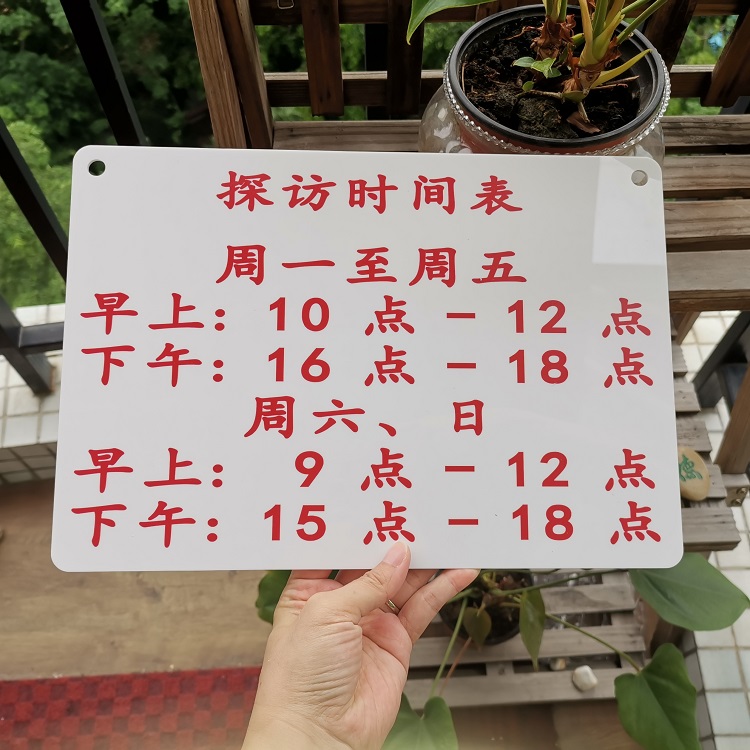 探访时间表
周一至周五
早上：10 点 － 12 点
下午：16 点 － 18 点
周六、日
早上： 9 点 － 12 点
下午：15 点 － 18 点